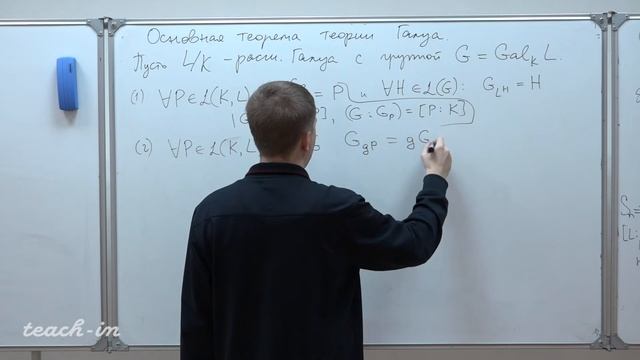 Основная теорема теории Галуа.
Пусть L/K - расш. Галуа с группой G = Gal_K L.
(1) ∀P∈ℒ(K,L) = P и ∀H∈ℒ(G): G_{L^H} = H
|G ], (G : G_P) = [P : K]
(2) ∀P∈ℒ(K,L G_{gP} = gG
[L:
teach-in